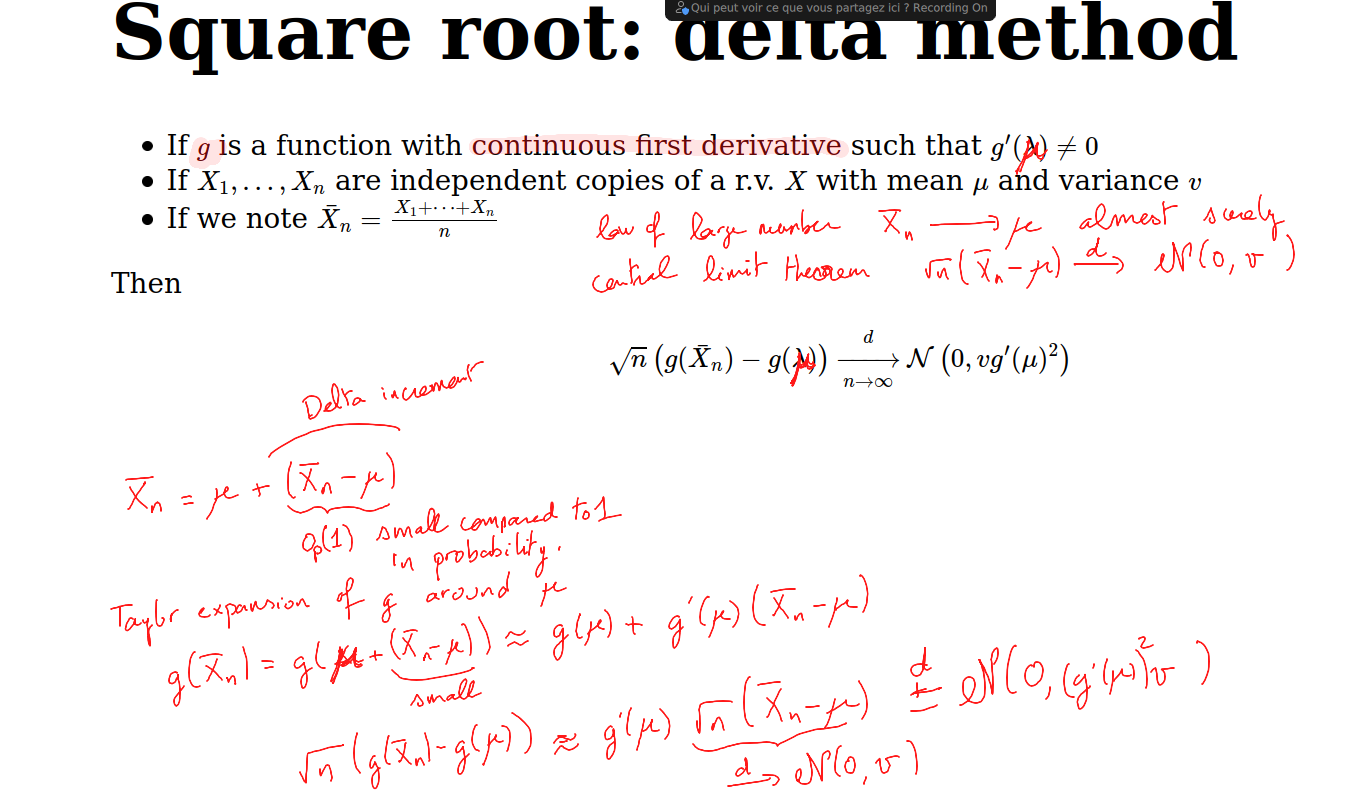 Qui peut voir ce que vous partagez ici ? Recording On
Square root: delta method
• If g is a function with continuous first derivative such that g′(μ) ≠ 0
• If X₁, …, Xₙ are independent copies of a r.v. X with mean μ and variance v
• If we note X̄ₙ = (X₁+⋯+Xₙ)/n
law of large number X̄ₙ ⟶ μ almost surely
central limit theorem √n(X̄ₙ − μ) —d→ N(0, v)
Then
√n (g(X̄ₙ) − g(μ)) —d→ n→∞ N (0, vg′(μ)²)
Delta increment
X̄ₙ = μ + (X̄ₙ − μ)
oₚ(1) small compared to 1
in probability.
Taylor expansion of g around μ
g(X̄ₙ) = g(μ + (X̄ₙ − μ)) ≈ g(μ) + g′(μ) (X̄ₙ − μ)
small
√n (g(X̄ₙ) − g(μ)) ≈ g′(μ) √n (X̄ₙ − μ) d N(0, (g′(μ))² v)
—d→ N(0, v)